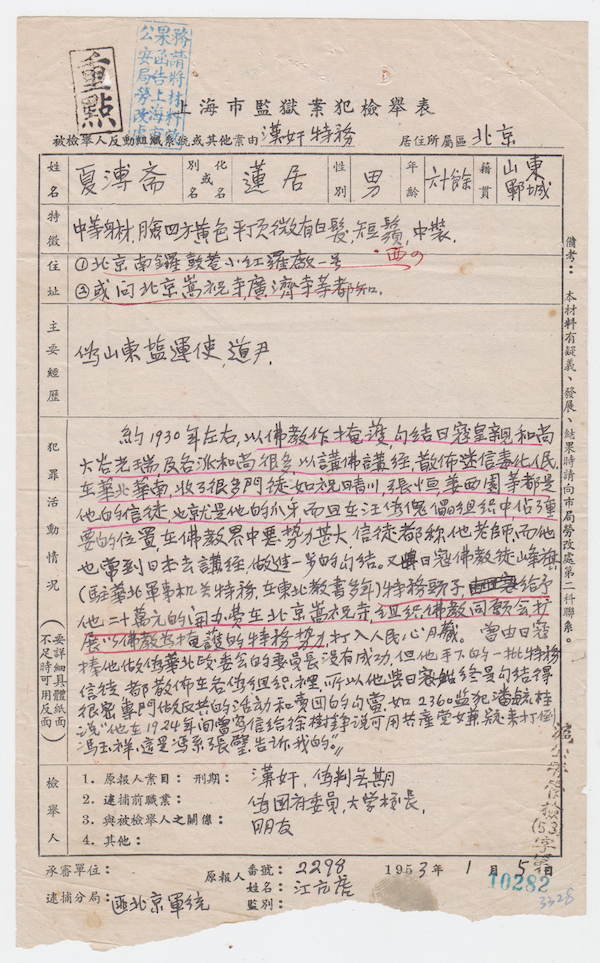 重點
務請將材料結
果函告上海市
公安局勞改處
上海市監獄案犯檢舉表
被檢舉人反動組織系統或其他案由 漢奸特務 居住所屬區 北京
姓名 夏溥斋 別或化名名 蓮居 性別 男 年齡 六十餘 籍貫 山東鄆城
特徵 中等身材,臉四方黃色平頂微有白髮,短鬚,中裝.
住址 ①北京南鑼鼓巷小紅羅廠一号 西四
②或问北京嵩祝寺,廣濟寺等都知.
主要經歷 偽山東塩運使,道尹,
犯罪活動情況(要詳細具體紙面不足時可用反面)
約1930年左右,以佛教作掩護勾結日寇皇親和尚
大谷光瑞,及各派和尚很多,以講佛講經,散佈迷信毒化人民.
在華北華南,收了很多門徒如祝晴川,張恒姜西園等都是
他的信徒,也就是他的爪牙而且在汪偽傀儡組织中佔了重
要的位置,在佛教界中要勢力甚大信徒都称他老師,而他
也常到日本去講經,做進一步的勾結。又與日寇佛教徒山峯旗
(駐華北軍事机关特務,在東北教書多年)特務頭子給予
他二十萬元的開办費在北京嵩祝寺,組织佛教同願会扩
展以佛教為掩護的特務势力,打入人民心月藏。當由日寇
捧他做偽華北政委会的委員長沒有成功,但他手下的一批特務
信徒都散佈在各偽組织裡,所以他與日寇始終是勾結得
很密專門做反共的活动和卖囯的勾當,如2360监犯潘毓桂
说"他在1924年间曾写信給徐樹錚说可用共產党嫌疑来打倒
馮玉祥,這是馮系張璧告訴我的。"
備考: 本材料有疑義、發展、結果時請向市局勞改處第二科聯系。
檢舉人
1. 原報人案目: 刑期: 漢奸,偽判无期
2. 逮捕前職業: 偽囯府委員,大学校長,
3. 與被檢舉人之關係: 朋友
4. 其他:
承審單位: 原報人 番號: 2298 1953年1月5日
姓名: 江亢虎
逮捕分局: 匪北京軍统 監別:
(53)字第
10282
3328